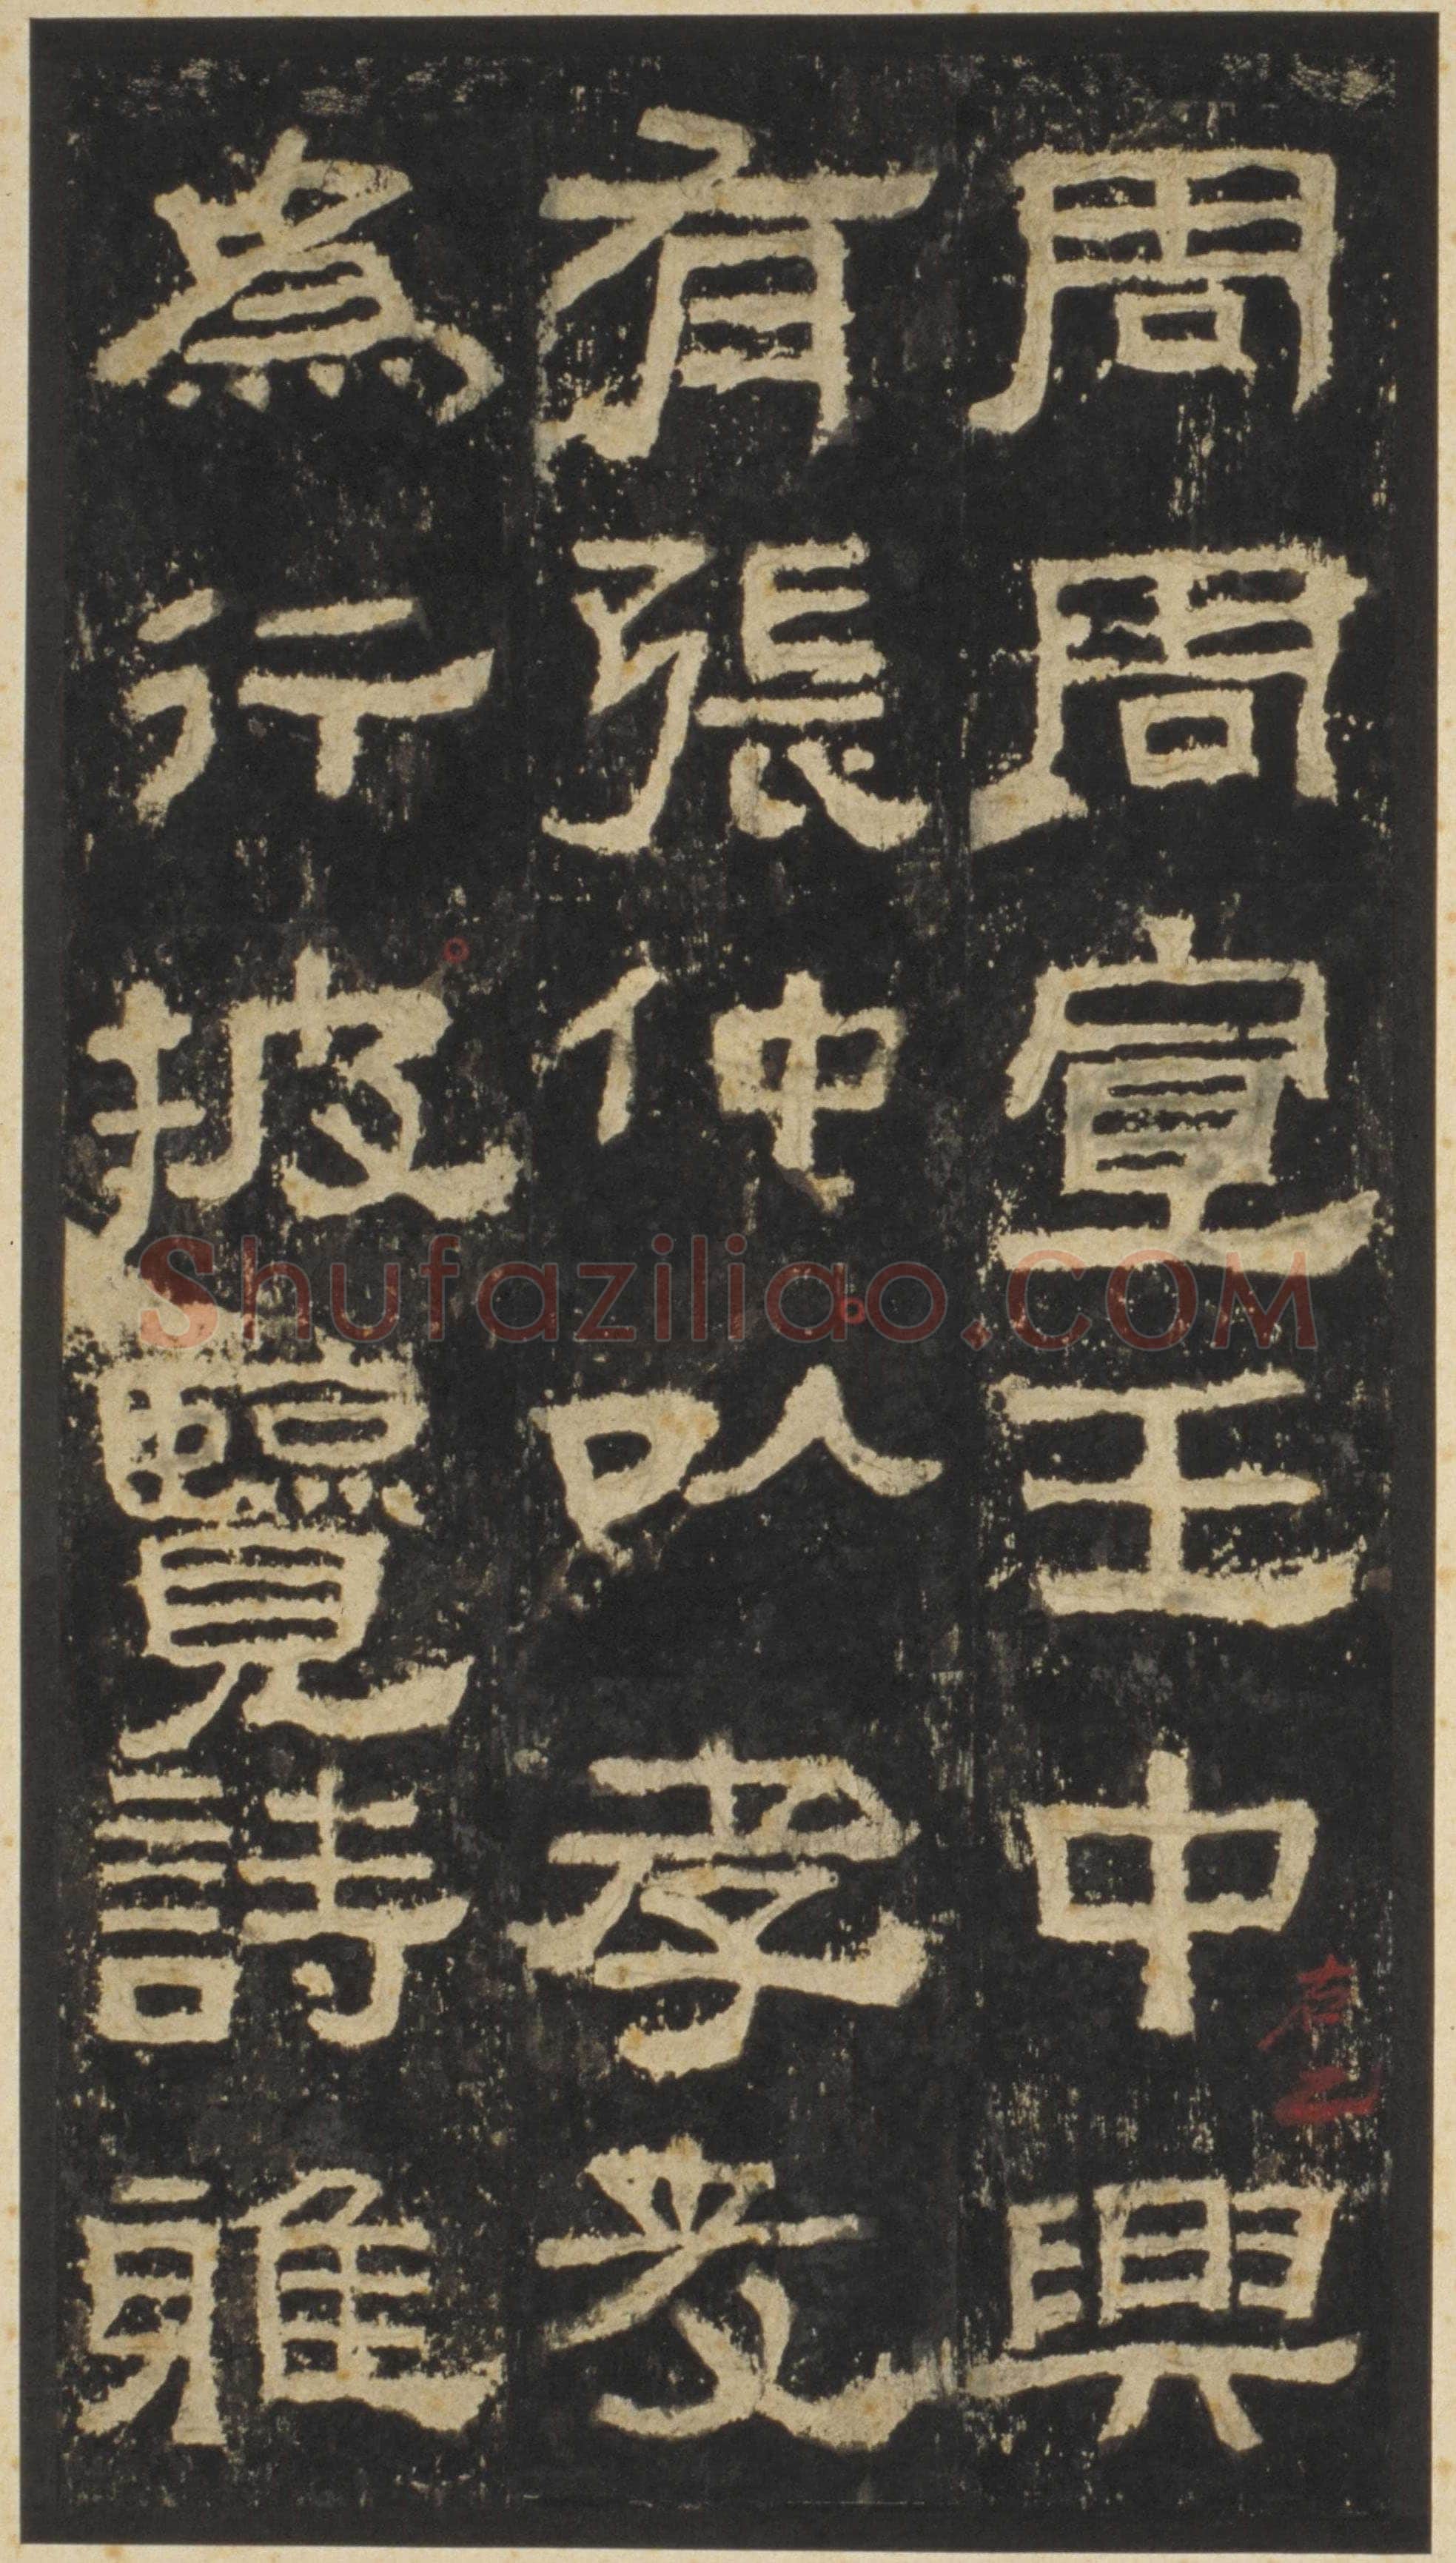 周周宣王中興
有張仲以孝友
為行披覽詩雅
Shufaziliao.COM